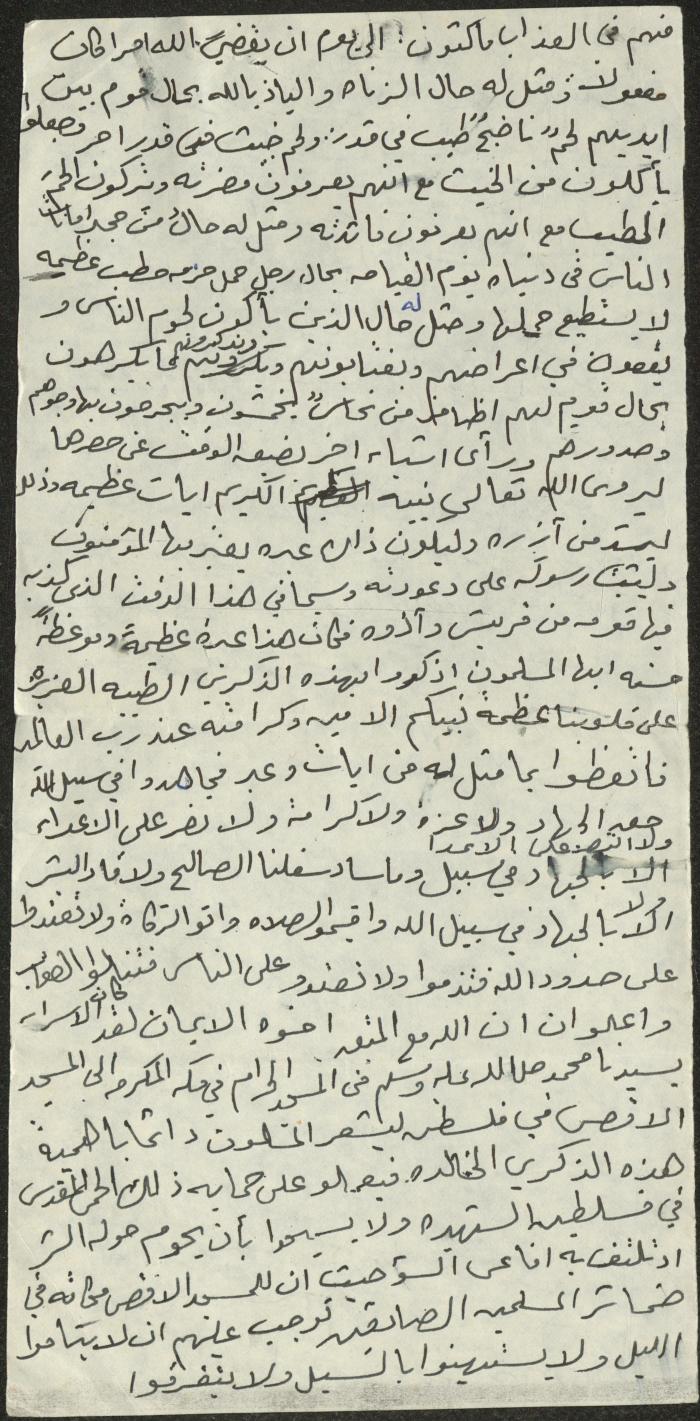 فهم في العذاب ماكثون: الى يوم ان يقضي الله امرا كان
مفعولا. ومثل له حال الزناه والياذ بالله بحال قوم بين
ايديهم لحم ناضج طيب في قدر: ولحم خبيث في قدر اخر فجعلوا
يأكلون من الخبيث مع انهم يعرفون مضرته ويتركون اللحم
الطيب مع انهم يعرفون فائدته ومثل له حال من حجد امانات
الناس في دنياه يوم القيامه بحال رجل حمل حزمه حطب عظيمه
لا يستطيع حملها ومثل له حال الذين يأكلون لحوم الناس و
يقعون في اعراضهم ويغتابونهم ويذكرونهم بما يكرهون
بحال قوم لهم اظافر من نحاس يخمشون ويجرحون بها وجوههم
وصدورهم ورأى اشياء اخر يضيق الوقت عن حصرها
ليروي الله تعالى نبيه الكريم ايات عظيمه وذلك
ليشد من آزره وليكون ذلك عبره يعتبر بها المؤمنون
وليثبت رسوله على دعودته وسيما في هذا الوقت الذي كذبه
فيها قومه من قريش وآذوه فكانت هذا عبرة عظيمة وموعظة
حسنه ايها المسلمون اذكروا بهذه الذكرى الطيبه العزيزه
على قلوبنا عظمة نبيكم الامين وكرامته عند رب العالمين
فاتعظوا بما مثل له من ايات وعبر فجاهدوا في سبيل الله
حق الجهاد ولا عزة ولا كرامة ولا نصر على الاعداء
ولا انتصر على الاعداء
الا بالجهاد في سبيل وما ساد سفلنا الصالح ولا قاد البشر
الا بالجهاد في سبيل الله واقيموا الصلاه واتو الزكاة ولا تعتدوا
على حدود الله فتندموا ولا تعتدو على الناس فتنالوا العواقب
واعلموا ان الله مع المتقين اخوة الايمان لقد كان الاسراء
بسيدنا محمد صلى الله عليه وسلم من المسجد الحرام في مكه المكرمه الى المسجد
الاقصى في فلسطين ليشعر المسلمون دائما باهمية
هذه الذكرى الخالده فيعملو على حمايه ذلك الحرم المقدس
في فسلطين الشهيده ولا يسمحوا بأن يحوم حوله الشر
او تلتف به افاعى السؤ حيث ان للمسجد الاقصى مكانه في
ضمائر المسلمين الصادقين توجب عليهم ان لا يناموا
الليل ولا يستهينوا بالسبيل ولا يتفرقوا